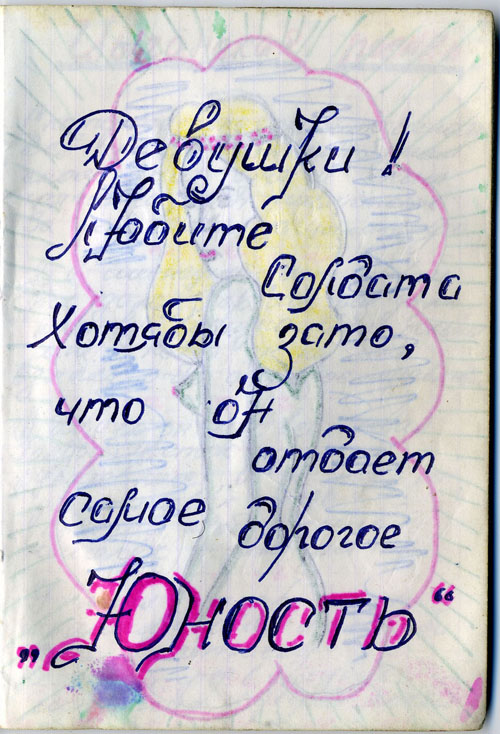 Девушки!
Любите
Солдата
Хотябы зато,
что он
отдает
самое дорогое
„Юность“